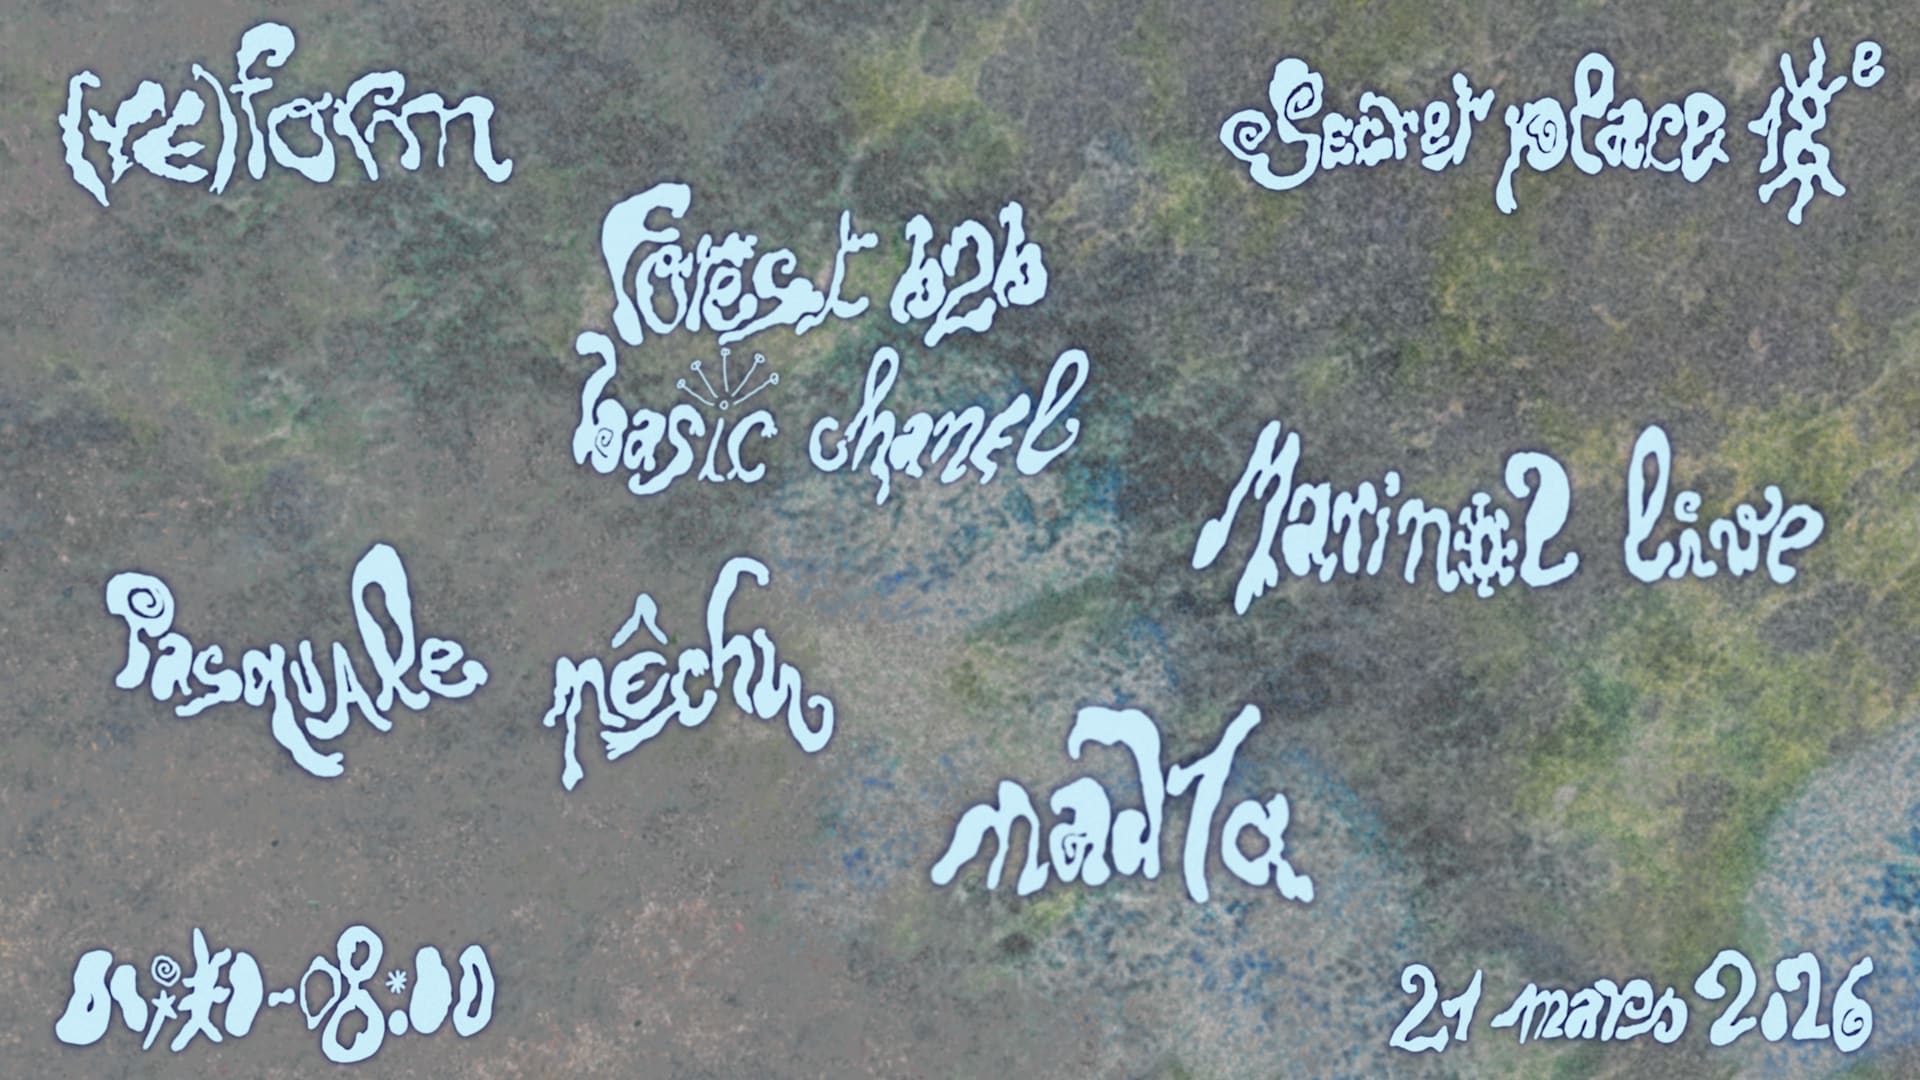 (re)form
Secret place 18e
Forest b2b
basic chanel
Marino2 live
Pasquale
pêchu
mad1a
-08:00
21 mars 2026